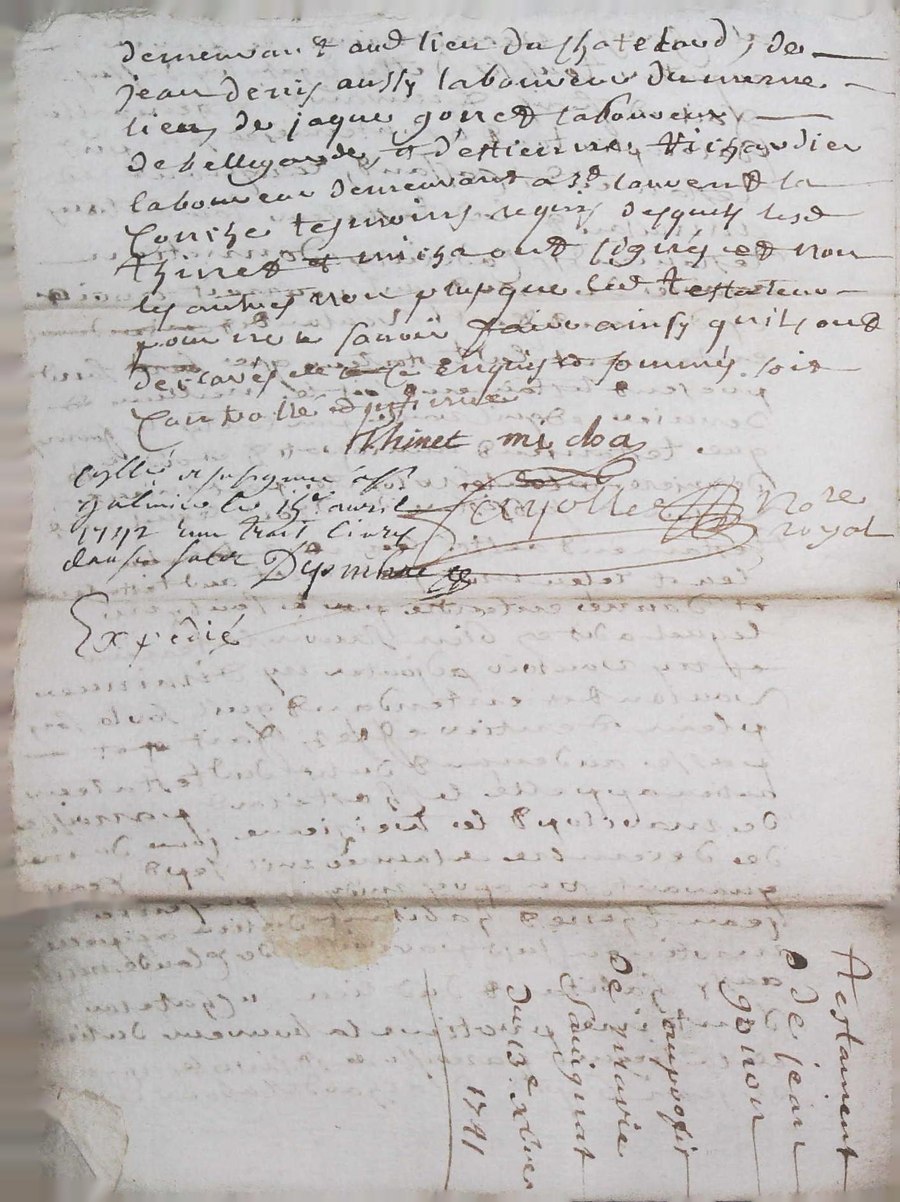 demeurant aud lieu du chatelard, de
jean denis aussy laboureur du mesme
lieu, de jaque gonet laboureur
de bellegarde, et d'estienne
laboureur demeurant a st laurent la
Conche tesmoins requis desquels lesd
thinet et micha ont signés et non
les autres non plus que led testateur
pour ne le savoir faire ainsy quils ont
desclarés de ce enquis et sommés soit
Controllé
thinet micha
Collé et
galmier le 15e avril
1742 trois livres
douze sols
fayolle Nore
royal
Expedié
Testament
de jean
gonon
au profit
de marie
du 13e xbre
1741